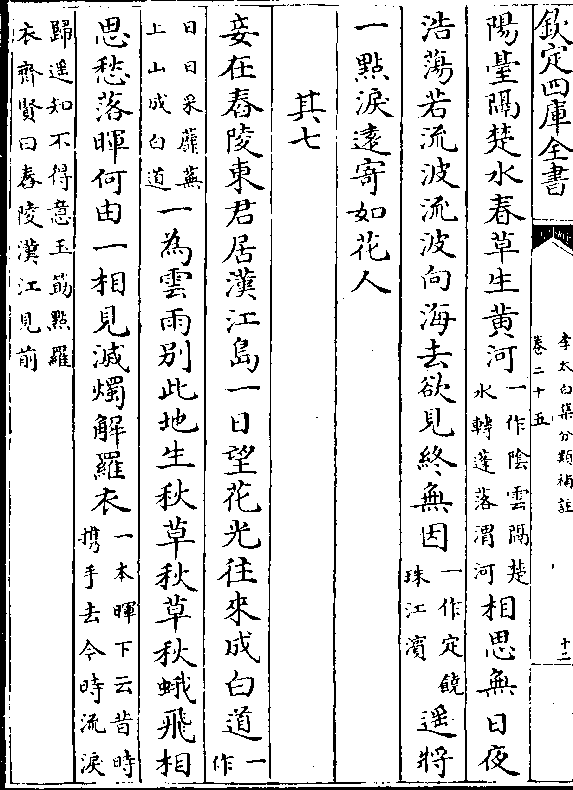 欽定四庫全書
李太白集分類補註
卷二十五
十二
陽臺隔楚水春草生黃河一作陰雲隔楚水轉蓬落渭河相思無日夜
浩蕩若流波流波向海去欲見終無因一作定饒珠江濱遥將
一點淚遠寄如花人
其七
妾在舂陵東君居漢江島一日望花光往來成白道一作
日日采蘼蕪上山成白道一為雲雨别此地生秋草秋草秋蛾飛相
思愁落暉何由一相見滅燭解羅衣一本暉下云昔時携手去今時流淚
歸遥知不得意玉筯點羅衣齊賢曰舂陵漢江見前